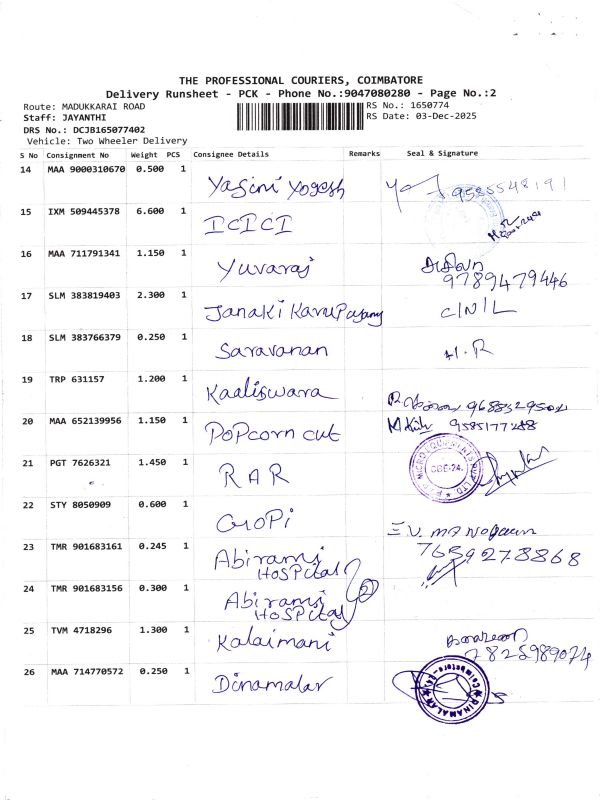 THE PROFESSIONAL COURIERS, COIMBATORE
Delivery Runsheet - PCK - Phone No.:9047080280 - Page No.:2
Route: MADUKKARAI ROAD
RS No.: 1650774
Staff: JAYANTHI
RS Date: 03-Dec-2025
DRS No.: DCJB165077402
Vehicle: Two Wheeler Delivery
S No Consignment No Weight PCS Consignee Details Remarks Seal & Signature
14 MAA 9000310670 0.500 1 Yasini Yogesh 9585548191
15 IXM 509445378 6.600 1 ICICI
16 MAA 711791341 1.150 1 Yuvaraj
9789479446
17 SLM 383819403 2.300 1 Janaki Karupasamy
18 SLM 383766379 0.250 1 Saravanan H.R
19 TRP 631157 1.200 1 Kaaliswara
20 MAA 652139956 1.150 1 Popcorn cut 9585177288
21 PGT 7626321 1.450 1 RAR CBE-24.
22 STY 8050909 0.600 1 Gopi
23 TMR 901683161 0.245 1 Abirami Hospital 7639278868
24 TMR 901683156 0.300 1 Abirami Hospital 2
25 TVM 4718296 1.300 1 Kalaimani
2825989074
26 MAA 714770572 0.250 1 Dinamalar DINAMALAR